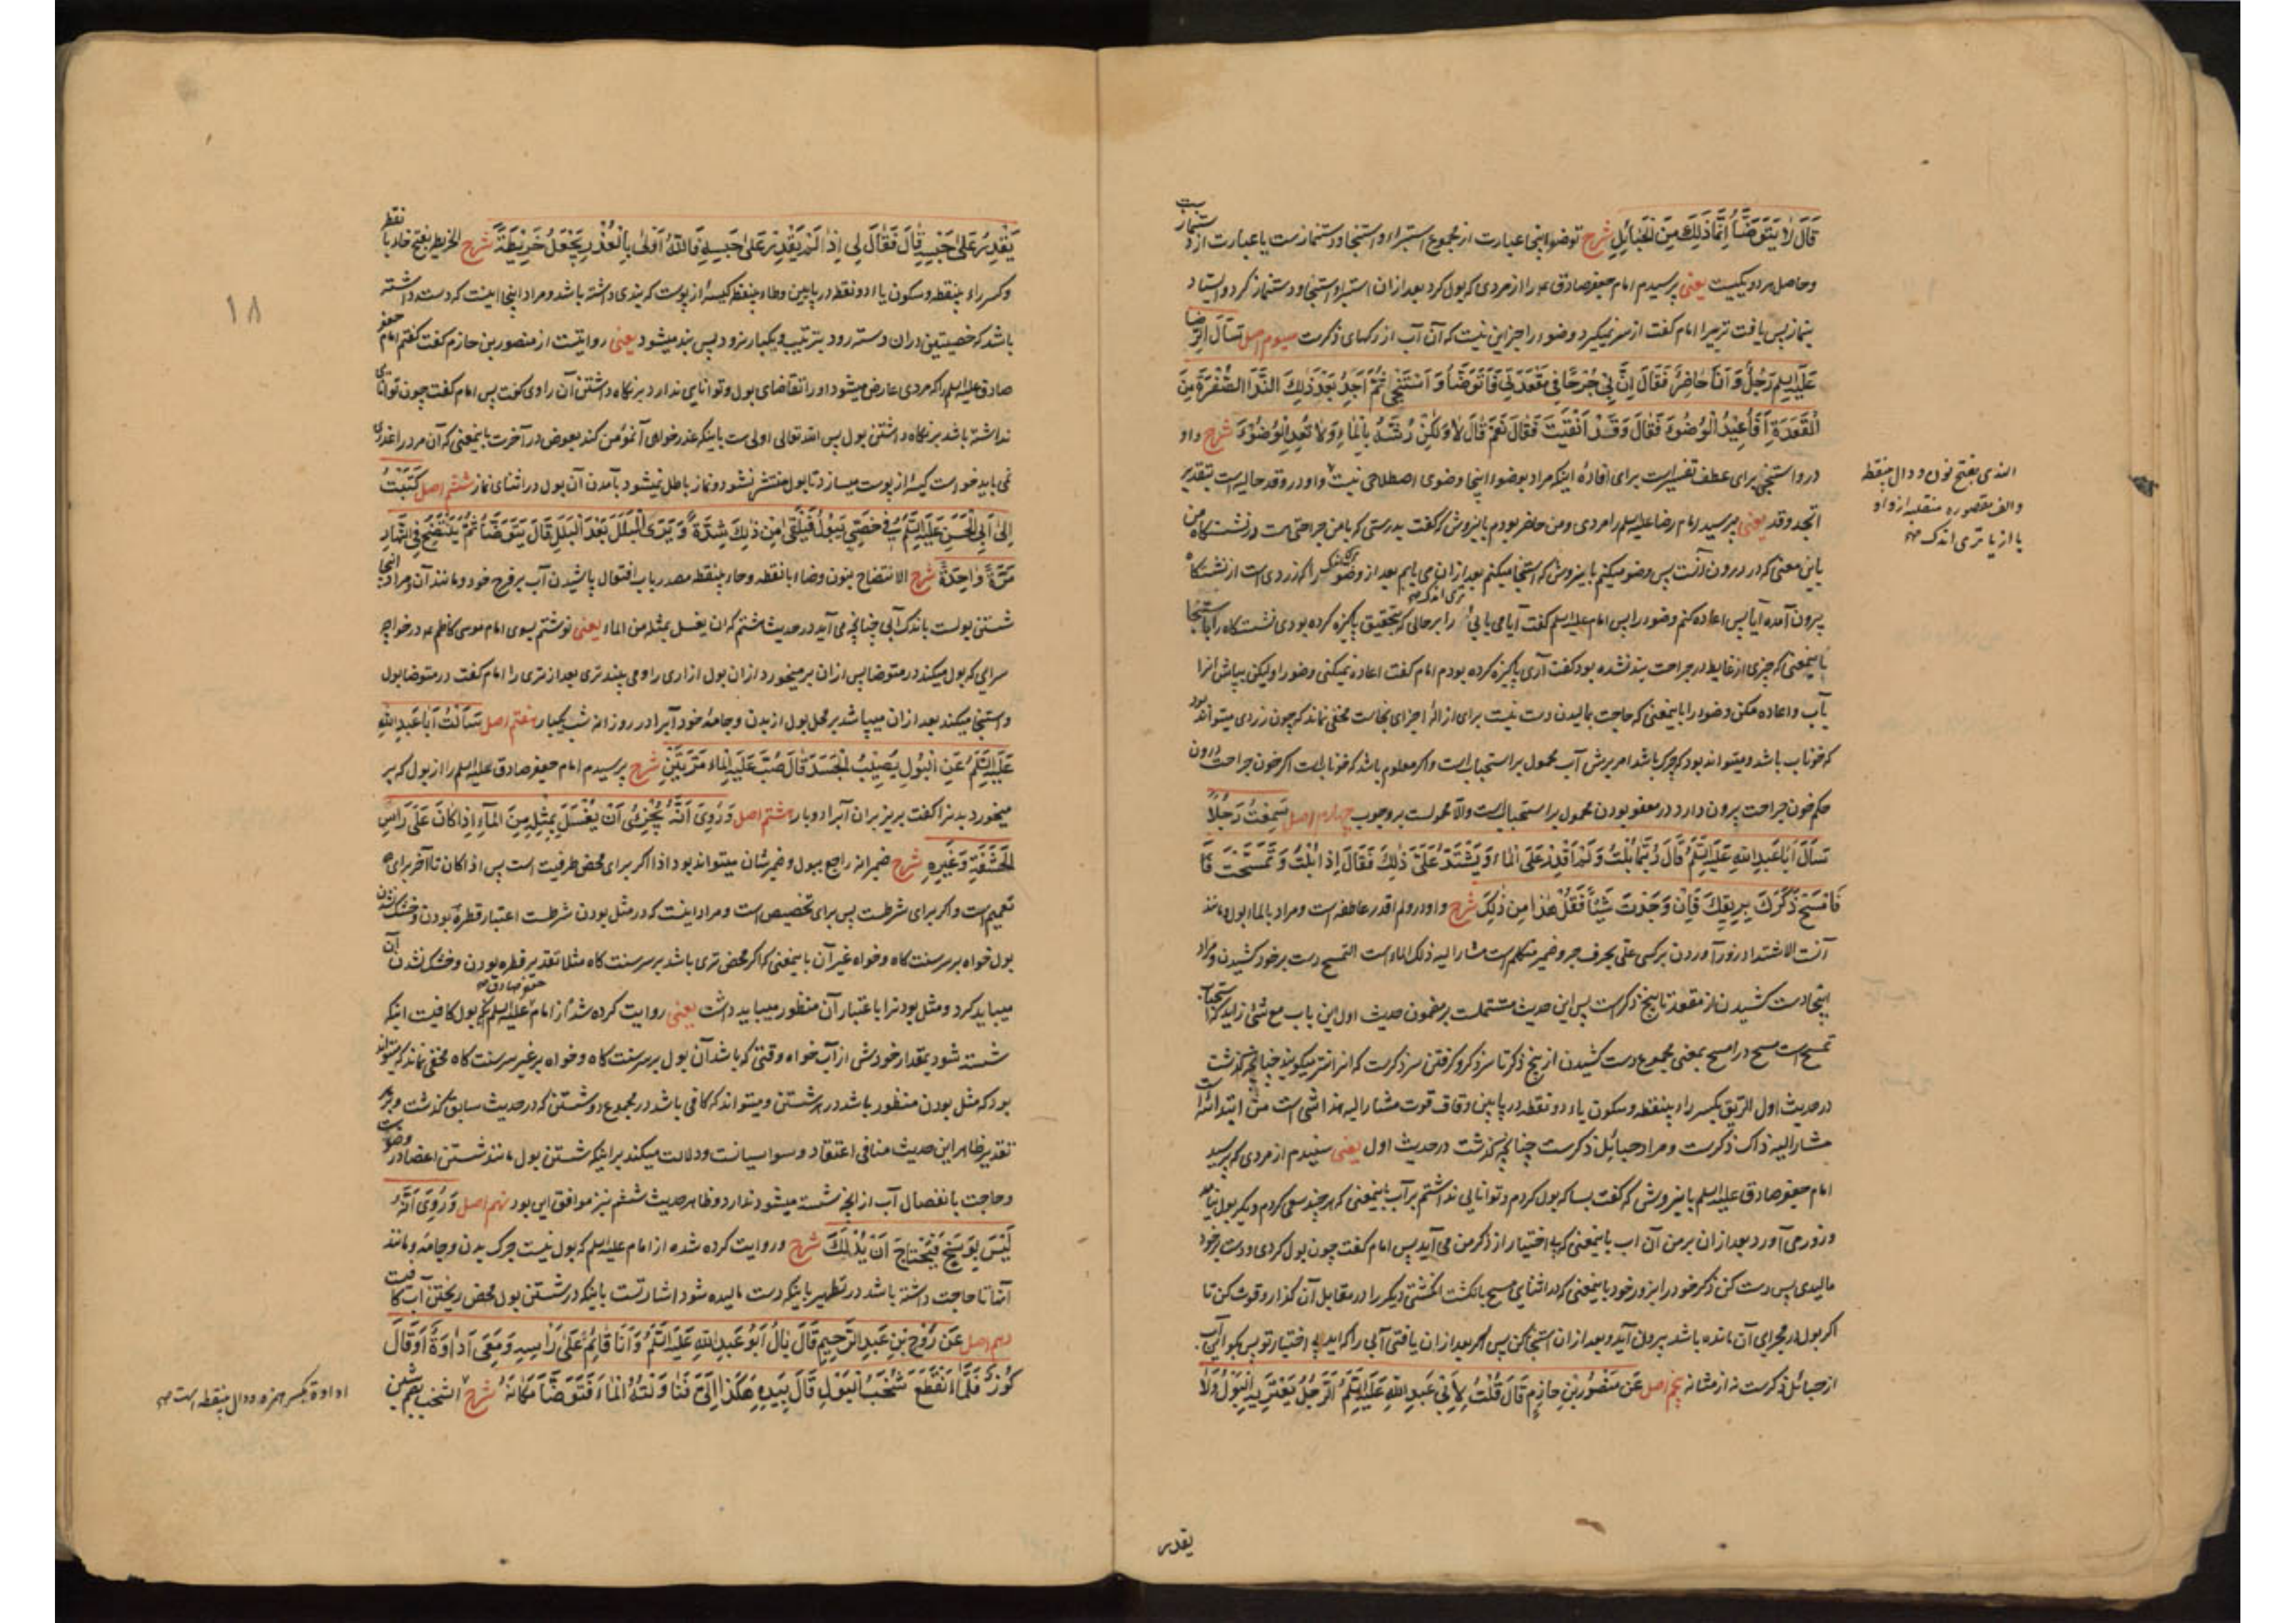 قَالَ لَا يَتَوَضَّأُ إِنَّمَا ذَلِكَ مِنَ الْحَبَائِلِ شرح توضوء اینجا عبارت از مجموع استبراء و استنجا و دستنماز است یا عبارت از دستنماز
و حاصل هر دو یکیست یعنی پرسیدم امام جعفر صادق ع م را از مردی که بول کرد بعد از ان استبرا و استنجا و دستنماز کرد و ایستاد
بنماز پس یافت تریرا امام گفت از سر نمیگیرد وضوء را جز این نیست که آن آب از رگهای ذکرست سیوم اصل سَأَلَ الرِّضَا
عَلَيْهِ السلم رَجُلٌ وَأَنَا حَاضِرٌ فَقَالَ إِنَّ بِي جُرْحًا فِي مَقْعَدَتِي فَأَتَوَضَّأُ وَأَسْتَنْجِي ثُمَّ أَجِدُ بَعْدَ ذَلِكَ النَّدَا الصُّفْرَةَ مِنَ
الْمَقْعَدَةِ أَفَأُعِيدُ الْوُضُوءَ فَقَالَ وَقَدْ أَنْقَيْتَ فَقَالَ نَعَمْ قَالَ لَا وَلَكِنْ رُشَّهُ بِالْمَاءِ وَلَا تُعِدِ الْوُضُوءَ شرح واو
در و استنجی برای عطف تفسیرست برای افادهٔ اینکه مراد بوضوء اینجا وضوی اصطلاحی نیست و واو در وقد حالیه است بتقدیر
اتجد وقد یعنی پرسید امام رضا علیه السلم را مردی و من حاضر بودم باینروش که گفت بدرستی که با من جراحتی هست در نشستگاه من
باین معنی که در درون آنست پس وضو میکنم باینروش که استنجا میکنم بعد از ان می یابم بعد از وضو تری اندک را که زردی است از نشستگاه
بیرون آمده آیا پس اعاده کنم وضو را پس امام علیه السلم گفت آیا می یابی را بر حالی که بتحقیق پاکیزه کرده بودی نشستگاه را باستنجا
باینمعنی که چیزی از غایط در جراحت بند نشده بود گفت آری پاکیزه کرده بودم امام گفت اعاده نمیکنی وضو را ولیکن بپاش انرا
بآب و اعاده مکن وضوء را باینمعنی که حاجت بمالیدن دست نیست برای ازالهٔ اجزای نجاست مخفی نماند که چون زردی میتواند بود
که خوناب باشد و میتواند بود که چرک باشد امر بریش آب محمول بر استحبابست و اگر معلوم باشد که خونابست اگر خون جراحت درون
حکم خون جراحت بیرون دارد در معفو بودن محمول بر استحبابست والا محمولست بر وجوب چهارم اصل سَمِعْتُ رَجُلًا
سَأَلَ أَبَا عَبْدِ اللَّهِ عَلَيْهِ السَّلَمُ قَالَ رُبَّمَا بُلْتُ وَلَمْ أَقْدِرْ عَلَى الْمَاءِ وَيَشْتَدُّ عَلَيَّ ذَلِكَ فَقَالَ إِذَا بُلْتَ وَتَمَسَّحْتَ فَا
فَامْسَحْ ذَكَرَكَ بِرِيقِكَ فَإِنْ وَجَدْتَ شَيْئًا فَقُلْ هَذَا مِنْ ذَلِكَ شرح واو در ولم اقدر عاطفه است و مراد بالماء بول و مانند
آنست الاشتداد زور آوردن بر کسی علی بحرف جر و ضمیر متکلم است مشار الیه ذلک الماء است التمسح دست بر خود کشیدن و مراد
اینجا دست کشیدن از مقعد تا بیخ ذکرست پس این حدیث مشتملست بر مضمون حدیث اول این باب مع شئ زاید که استحباب
تمسح است مسح در امسح بمعنی مجموع دست کشیدن از بیخ ذکر تا سر ذکر و گرفتن سر ذکرست که انرا نتر میگویند چنانچه گذشت
در حدیث اول الریق بکسر راء بینقطه و سکون یاء دو نقطه در پایین و قاف قوت مشار الیه هذا شئ است من ابتدائیه است
مشار الیه ذاک ذکرست و مراد حبائل ذکرست چنانچه گذشت در حدیث اول یعنی شنیدم از مردی که پرسید
امام جعفر صادق علیه السلم باینروش که گفت بسا که بول کردم و توانایی نداشتم بر آب باینمعنی که هر چند سعی کردم دیگر بول نیامد
و زور می آورد بعد از ان بر من آن اب باینمعنی که بی اختیار از ذکر من می آید پس امام گفت چون بول کردی و دست بر خود
مالیدی پس دست کن ذکر خود را بزور خود باینمعنی که در اثنای مسح بانگشت انگشتی دیگر را در مقابل آن گذار و قوت کن تا
اگر بول در مجرای آن مانده باشد بیرون آید و بعد از ان استنجا کن پس اگر بعد از ان یافتی آبی را که اید بی اختیار تو پس بگو این آب
از حبائل ذکرست نه از مثانه پنجم اصل عَنْ مَنْصُورِ بْنِ حَازِمٍ قَالَ قُلْتُ لِأَبِي عَبْدِ اللَّهِ عَلَيْهِ السَّلَمُ الرَّجُلُ يَعْتَرِيهِ الْبَوْلُ وَلَا
یقدر
الندی بفتح نون و دال بینقطه
و الف مقصوره منقلبه از واو
یا از یا تری اندک منه
يَقْدِرُ عَلَى حَبْسِهِ قَالَ فَقَالَ لِي إِذَا لَمْ يَقْدِرْ عَلَى حَبْسِهِ فَاللَّهُ أَوْلَى بِالْعُذْرِ يَجْعَلُ خَرِيطَةً شرح الخریطه بفتح خاء با نقطه
و کسر راء بینقطه و سکون یاء دو نقطه در پایین و طاء بینقطه کیسهٔ از پوست که بندی داشته باشد و مراد اینجا اینست که دست داشته
باشد که خصیتین دران و دسته رود بترتیب و یکبار نرود پس بند میشود یعنی روایتست از منصور بن حازم گفت گفتم امام جعفر
صادق علیه السلم را که مردی عارض میشود او را تقاضای بول و توانایی ندارد بر نگاه داشتن آن راوی گفت پس امام گفت چون توانائی
نداشته باشد بر نگاه داشتن بول پس الله تعالی اولی است باینکه عذر خواهی آنمؤمن کند بعوض در آخرت باینمعنی که آن مرد را عذری
نمی باید خواست کیسهٔ از پوست میسازد تا بول منتشر نشود و نماز باطل نمیشود بآمدن آن بول در اثنای نماز ششم اصل كَتَبْتُ
إِلَى أَبِي الْحَسَنِ عَلَيْهِ السَّلَمُ فِي خَصِيٍّ يَبُولُ فَيَلْقَى مِنْ ذَلِكَ شِدَّةً وَيَرَى الْبَلَلَ بَعْدَ الْبَلَلِ قَالَ يَتَوَضَّأُ ثُمَّ يَنْتَضِحُ فِي النَّهَارِ
مَرَّةً وَاحِدَةً شرح الانتضاح بنون و ضاد با نقطه و حاء بینقطه مصدر باب افتعال پاشیدن آب بر فرج خود و مانند آن و مراد اینجا
شستن بولست باندک آبی چنانچه می آید در حدیث هشتم که ان یغسل بمثله من الماء یعنی نوشتم بسوی امام موسی کاظم ع م در خواجه
سرایی که بول میکند در متوضا پس ازان بر میخورد ازان بول ازاری را و می بیند تری بعد از تری را امام گفت در متوضا بول
و استنجا میکند بعد از ان میپاشد بر محل بول از بدن و جامهٔ خود آبرا در روز انه شب یکبار هفتم اصل سَأَلْتُ أَبَا عَبْدِ اللَّهِ
عَلَيْهِ السَّلَمُ عَنِ الْبَوْلِ يُصِيبُ الْجَسَدَ قَالَ صُبَّ عَلَيْهِ الْمَاءَ مَرَّتَيْنِ شرح پرسیدم امام جعفر صادق علیه السلم را از بول که بر
میخورد بدنرا گفت بریز بران آبرا دو بار هشتم اصل وَرُوِيَ أَنَّهُ يُجْزِئُ أَنْ يُغْسَلَ بِمِثْلِهِ مِنَ الْمَاءِ إِذَا كَانَ عَلَى رَأْسِ
الْحَشَفَةِ وَغَيْرِهِ شرح ضمیر انه راجع ببول و ضمیر شان میتواند بود اذا اگر برای محض ظرفیت است پس اذا کان تا آخر برای
تعمیم است و اگر برای شرطست پس برای تخصیص است و مراد اینست که در مثل بودن شرطست اعتبار قطرهٔ بودن و خشک نشدن
بول خواه بر سر سنت گاه و خواه غیر آن باینمعنی که اگر محض تری باشد بر سر سنت گاه مثلا تقدیر قطره بودن و خشک نشدن آن
میباید کرد و مثل بودنرا باعتبار آن منظور میباید داشت یعنی روایت کرده شد از امام جعفر صادق علیه السلم که بول کافیست اینکه
شسته شود بمقدار خودش از آب خواه وقتی که باشد آن بول بر سر سنت گاه و خواه بر غیر سر سنت گاه مخفی نماند که میتواند
بود که مثل بودن منظور باشد در هر شستن و میتواند که کافی باشد در مجموع دو شستن که در حدیث سابق گذشت و بر هر
تقدیر ظاهر این حدیث منافی اعتقاد وسواسیانست و دلالت میکند بر اینکه شستن بول مانند شستن اعضا در وضوست
و حاجت بانفصال آب از آنچه شسته میشود ندارد و ظاهر حدیث ششم نیز موافق این بود نهم اصل وَرُوِيَ أَنَّهُ
لَيْسَ بِوَسَخٍ فَيُحْتَاجَ أَنْ يُدْلَكَ شرح و روایت کرده شده از امام علیه السلم که بول نیست چرک بدن و جامه و مانند
آنها تا حاجت داشته باشد در تطهیر باینکه دست مالیده شود اشارتست باینکه در شستن بول محض ریختن آب کافیست
دهم اصل عَنْ رَوْحِ بْنِ عَبْدِ الرَّحِيمِ قَالَ بَالَ أَبُو عَبْدِ اللَّهِ عَلَيْهِ السَّلَمُ وَأَنَا قَائِمٌ عَلَى رَأْسِهِ وَمَعِي أَدَاوَةٌ أَوْ قَالَ
كُوزٌ فَلَمَّا انْقَطَعَ شُخْبُ الْبَوْلِ قَالَ بِيَدِهِ هَكَذَا إِلَيَّ فَنَاوَلْتُهُ الْمَاءَ فَتَوَضَّأَ مَكَانَهُ شرح الشخب بضم شین
اداوة بکسر همزه و دال بینقطه است منه
۱۸